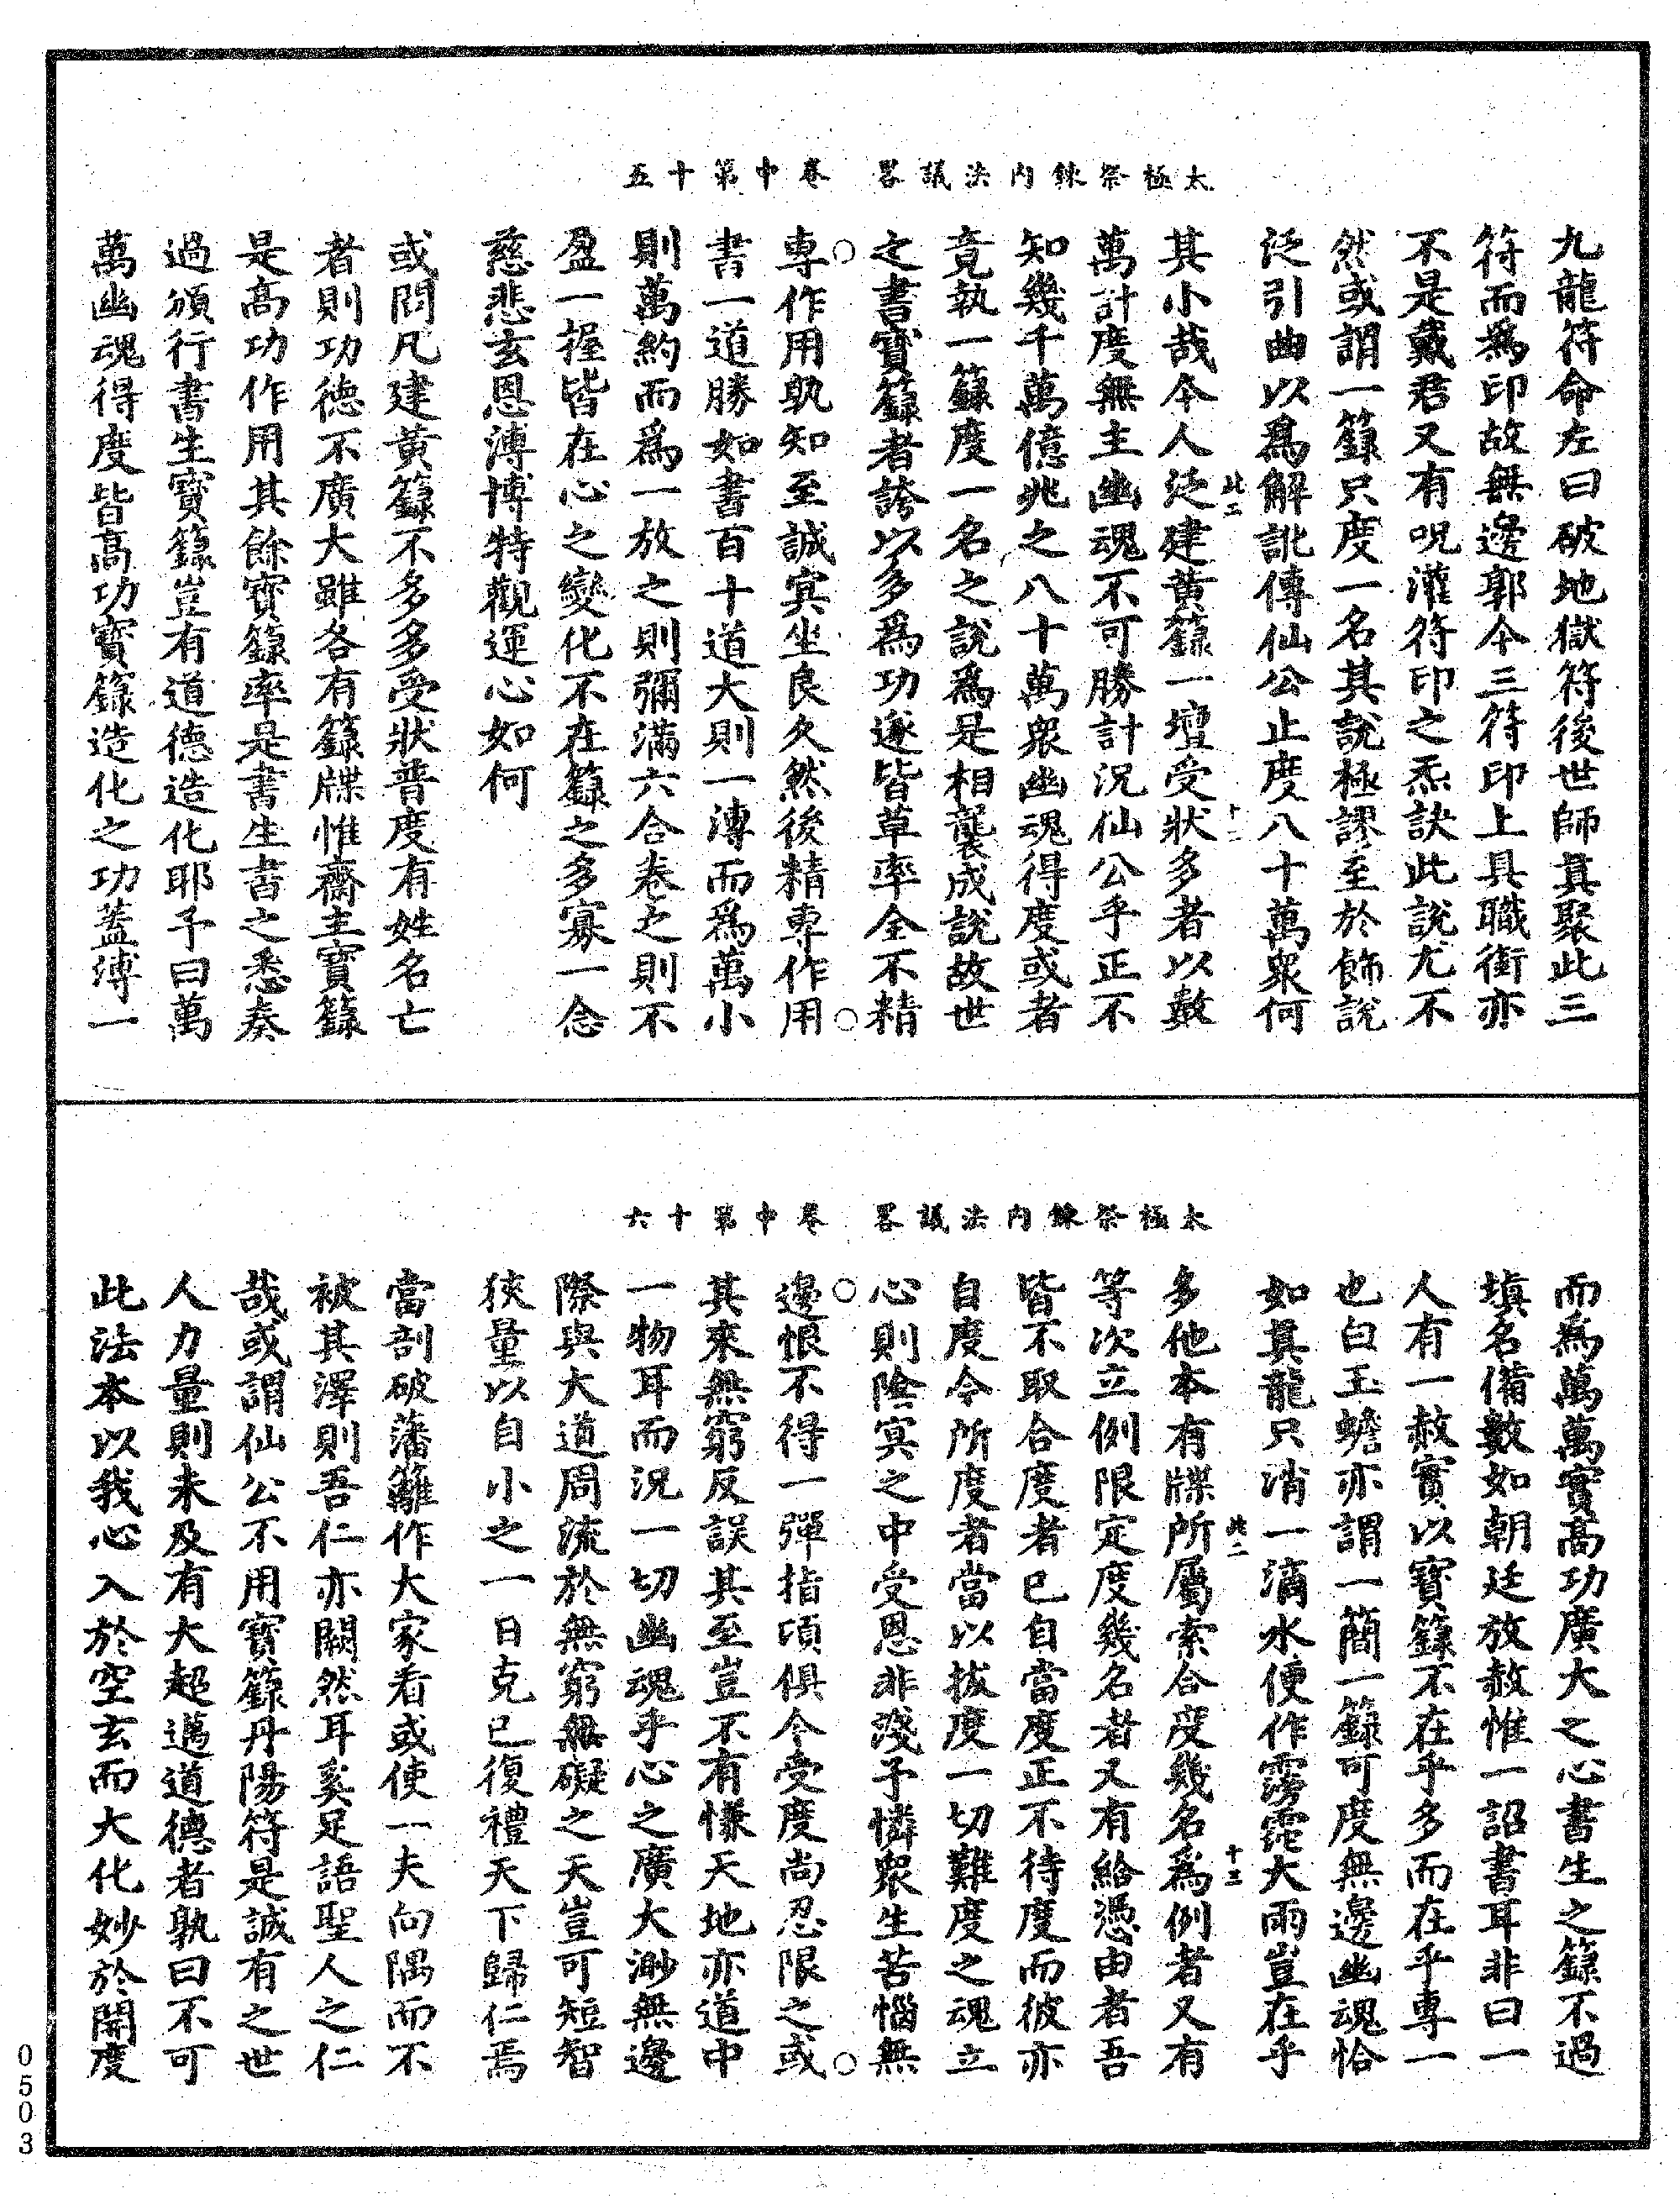 太極祭鍊內法議畧　卷中第十五
九龍符命左曰破地獄符後世師真聚此三
符而爲印故無邊郭今三符印上具職銜亦
不是戴君又有呪灌符印之炁訣此說尤不
然或謂一籙只度一名其說極謬至於飾說
泛引曲以爲解訛傳仙公止度八十萬衆何
其小哉今人泛建黃籙一壇受狀多者以數
此二
十二
萬計度無主幽魂不可勝計況仙公乎正不
知幾千萬億兆之八十萬衆幽魂得度或者
竟執一籙度一名之說爲是相襲成說故世
之書寶籙者誇以多爲功遂皆草率全不精
專作用孰知至誠冥坐良久然後精專作用
書一道勝如書百十道大則一溥而爲萬小
則萬約而爲一放之則彌滿六合卷之則不
盈一握皆在心之變化不在籙之多寡一念
慈悲玄恩溥博特觀運心如何
或問凡建黃籙不多多受狀普度有姓名亡
者則功德不廣大雖各有籙牒惟齋主寶籙
是高功作用其餘寶籙率是書生書之悉奏
過頒行書生寶籙豈有道德造化耶予曰萬
萬幽魂得度皆高功寶籙造化之功蓋溥一
太極祭鍊內法議畧　卷中第十六
而爲萬萬實高功廣大之心書生之籙不過
填名備數如朝廷放赦惟一詔書耳非曰一
人有一赦實以寶籙不在乎多而在乎專一
也白玉蟾亦謂一簡一籙可度無邊幽魂恰
如真龍只消一滴水便作霶霈大雨豈在乎
多他本有牒所屬索合度幾名爲例者又有
此二
十三
等次立例限定度幾名者又有給憑由者吾
皆不取合度者已自當度正不待度而彼亦
自度今所度者當以拔度一切難度之魂立
心則陰冥之中受恩非淺予憐衆生苦惱無
邊恨不得一彈指頃俱令受度尚忍限之或
其來無窮反誤其至豈不有慊天地亦道中
一物耳而況一切幽魂乎心之廣大渺無邊
際與大道周流於無窮無礙之天豈可短智
狹量以自小之一日克己復禮天下歸仁焉
當剖破藩籬作大家看或使一夫向隅而不
被其澤則吾仁亦闕然耳奚足語聖人之仁
哉或謂仙公不用寶籙丹陽符是誠有之世
人力量則未及有大超邁道德者孰曰不可
此法本以我心入於空玄而大化妙於開度
0503